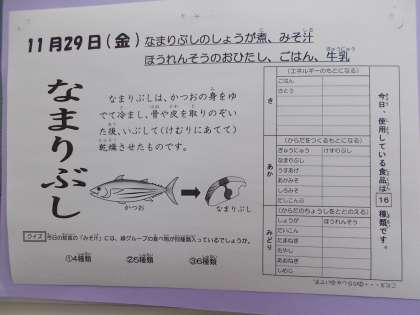 11月29日(金)
なまりぶしのしょうが煮、みそ汁
ほうれんそうのおひたし、ごはん、牛乳
なまりぶし
なまりぶしは、かつおの身をゆ
でて冷まし、骨や皮を取りのぞい
た後、いぶして(けむりにあてて)
乾燥させたものです。
かつお
なまりぶし
クイズ 今日の給食の「みそ汁」には、緑グループの食べ物が何種類入っているでしょうか。
①4種類 ②5種類 ③6種類
き
(エネルギーのもとになる)
ごはん
さとう
あか
(からだをつくるもとになる)
ぎゅうにゅう けずりぶし
なまりぶし
うすあげ
あかみそ
しろみそ
だしこんぶ
みどり
(からだのちょうしをととのえる)
しょうが ほうれんそう
だいこん
たまねぎ
もやし
あおねぎ
しめじ
今日、使用している食品は
16
種類です。